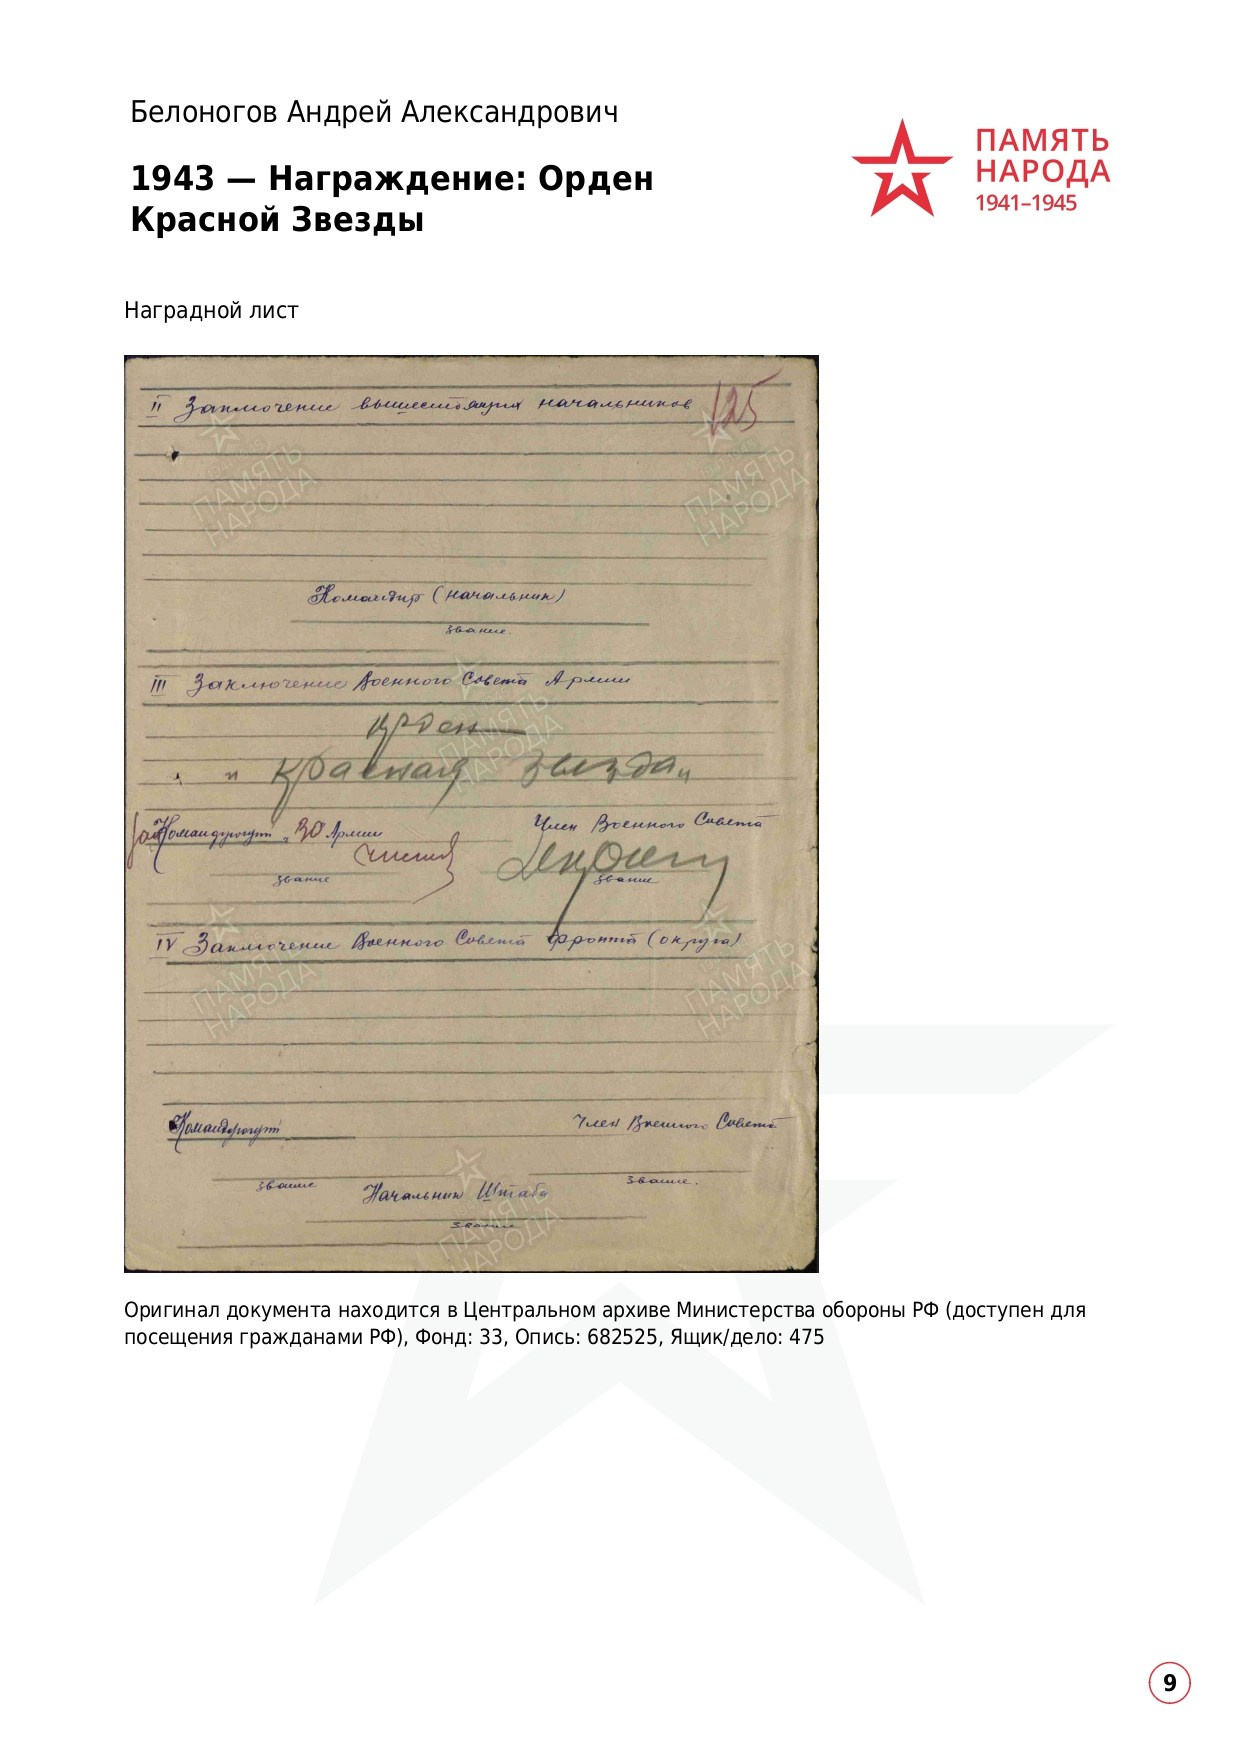 Белоногов Андрей Александрович
1943 — Награждение: Орден
Красной Звезды
ПАМЯТЬ
НАРОДА
1941–1945
Наградной лист
125
II Заключение вышестоящих начальников
Командир (начальник)
звание.
III Заключение Военного Совета Армии
Орден
„Красная Звезда„
Командующий „30 Армии
Член Военного Совета
звание
звание
IV Заключение Военного Совета фронта (округа)
Командующий
Член Военного Совета
звание
звание.
Начальник Штаба
звание
ПАМЯТЬ
НАРОДА
Оригинал документа находится в Центральном архиве Министерства обороны РФ (доступен для
посещения гражданами РФ), Фонд: 33, Опись: 682525, Ящик/дело: 475
9